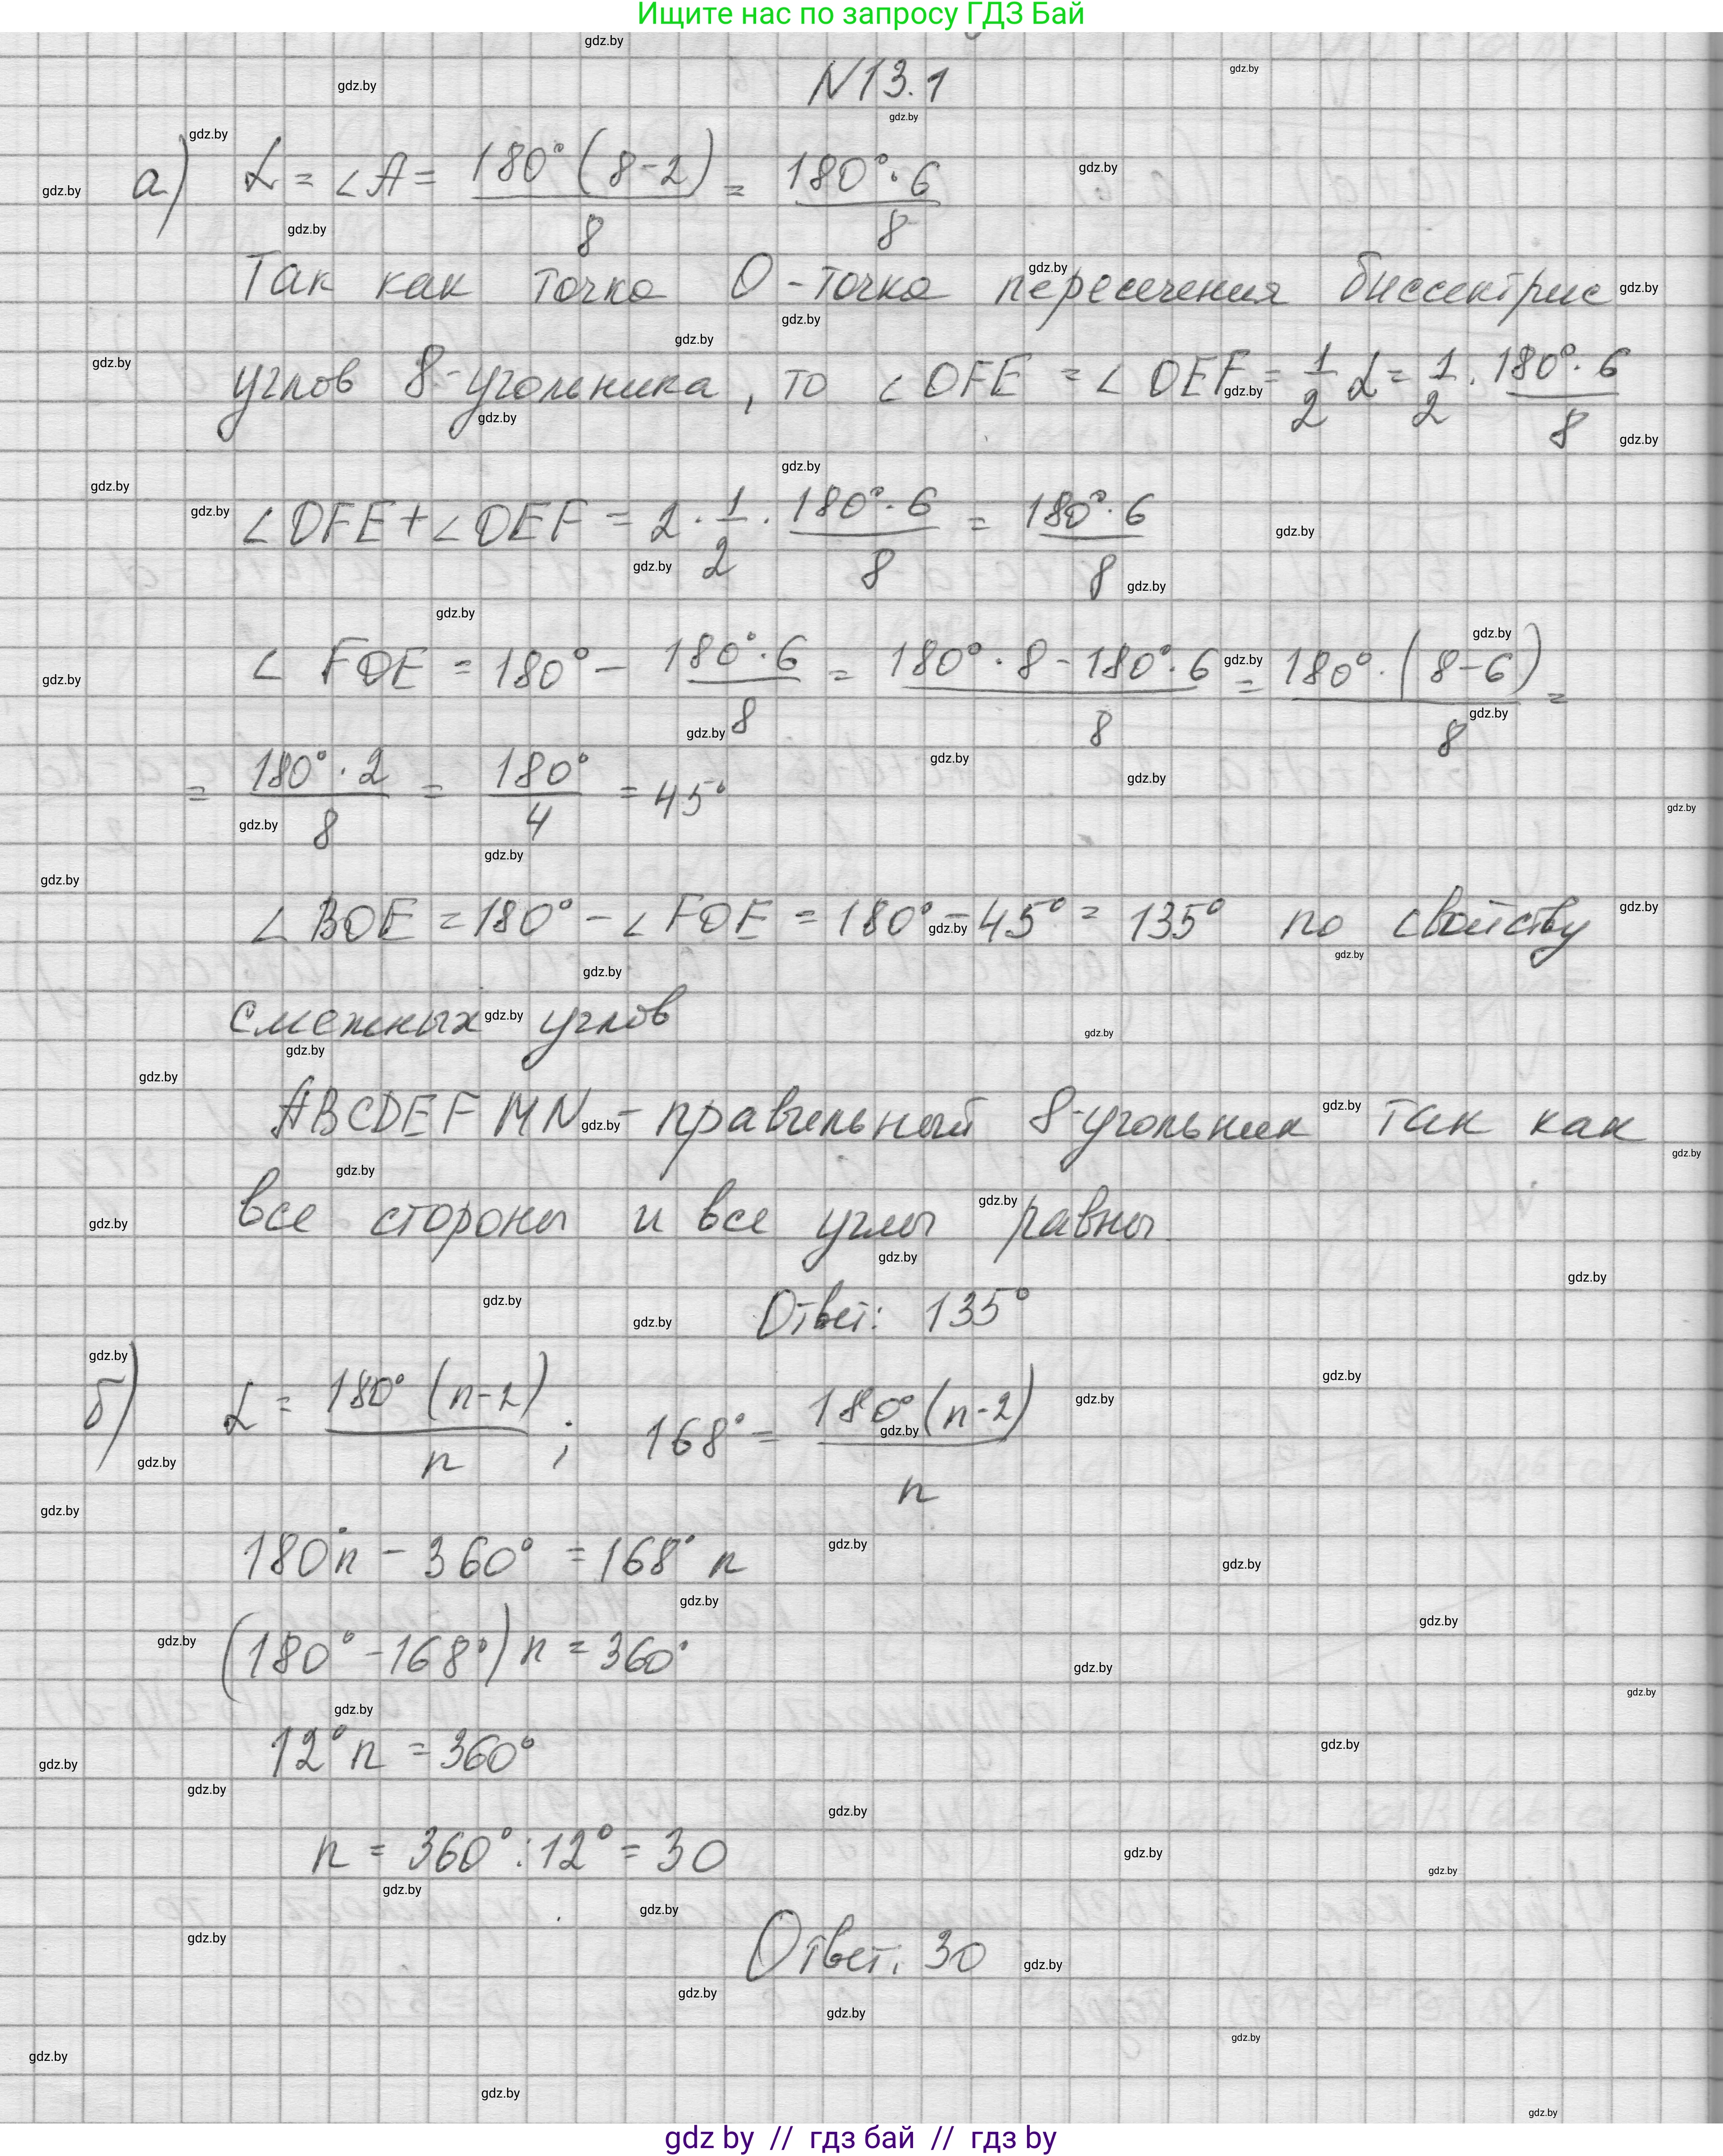 Ищите нас по запросу ГДЗ Бай
N13.1
а) α = ∠A = 180°(8-2)/8 = 180°·6/8
Так как точка О - точка пересечения биссектрис
углов 8-угольника, то ∠OFE = ∠OEF = 1/2 α = 1/2 · 180°·6/8
∠OFE + ∠OEF = 2 · 1/2 · 180°·6/8 = 180°·6/8
∠ FOE = 180° - 180°·6/8 = 180°·8-180°·6/8 = 180°·(8-6)/8 =
= 180°·2/8 = 180°/4 = 45°
∠ BOE = 180° - ∠FOE = 180° - 45° = 135° по свойству
смежных углов
ABCDEFMN - правильный 8-угольник так как
все стороны и все углы равны.
Ответ: 135°
б) α = 180°(n-2)/n ; 168° = 180°(n-2)/n
180°n - 360° = 168°n
(180° - 168°)n = 360°
12°n = 360°
n = 360° : 12° = 30
Ответ: 30
gdz by // гдз бай // гдз by